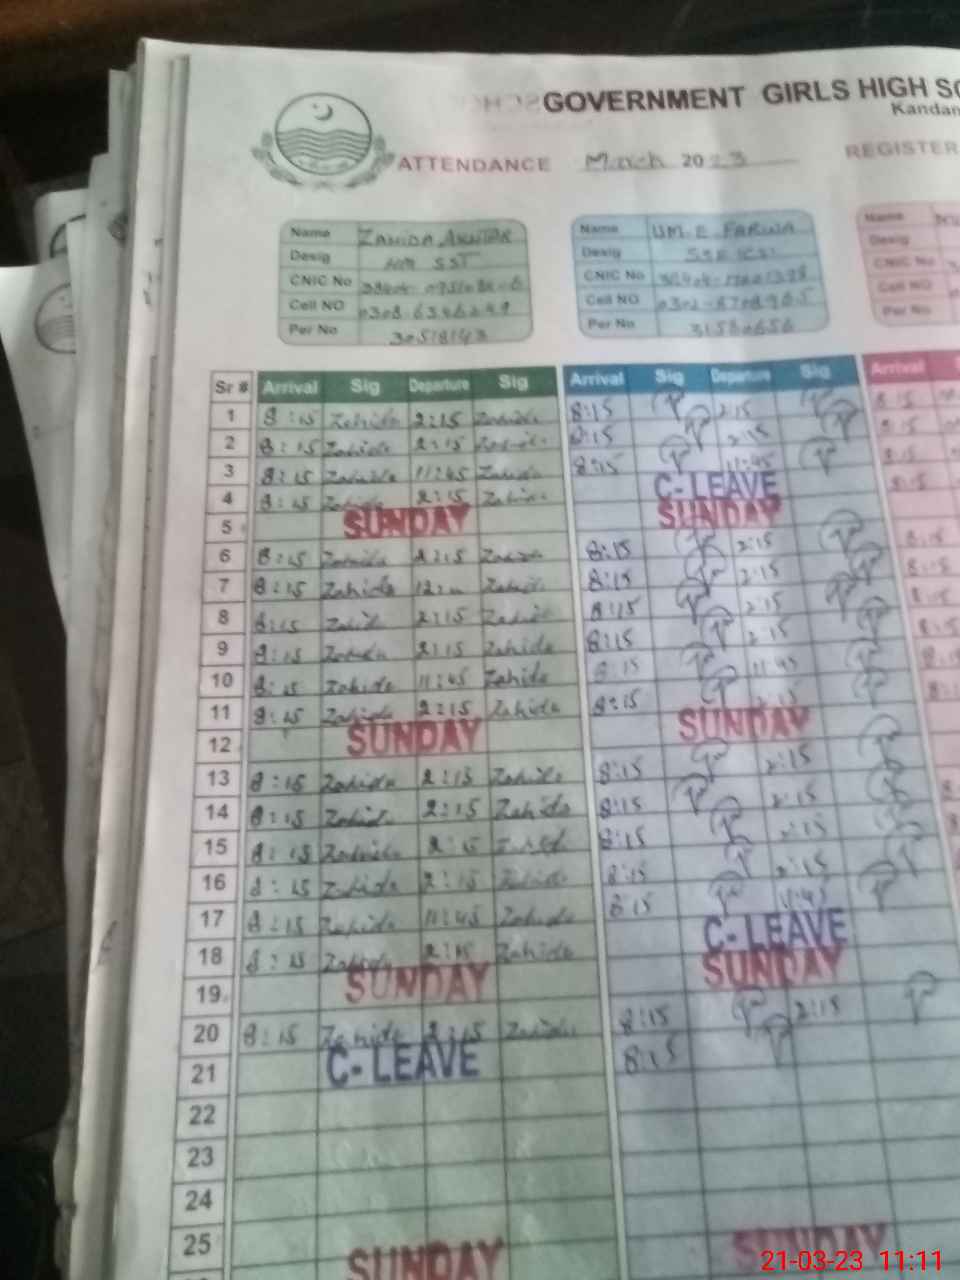 GOVERNMENT GIRLS HIGH SC
Kandan
ATTENDANCE March 2023 REGISTER
Name ZAHIDA AKHTAR
Desig HM SST
CNIC No
Cell NO 0308-6346249
Per No 30518143
Name UM-E FARWA
Desig SSE
CNIC No
Cell NO
Per No 31580656
Name
Desig
CNIC No
Cell NO
Per No
Sr # Arrival Sig Departure Sig Arrival Sig Departure Sig Arrival
1 8:15 Zahida 2:15 Zahida 8:15 2:15 8:15
2 8:15 Zahida 2:15 Zahida 8:15 2:15 8:15
3 8:15 Zahida 11:45 Zahida 8:15 11:45 8:15
4 8:15 Zahida 2:15 Zahida C-LEAVE 8:15
5 SUNDAY SUNDAY
6 8:15 Zahida 2:15 Zahida 8:15 2:15 8:15
7 8:15 Zahida Zahida 8:15 2:15 8:15
8 8:15 Zahida 2:15 Zahida 8:15 2:15 8:15
9 8:15 Zahida 2:15 Zahida 8:15 2:15 8:15
10 8:15 Zahida 11:45 Zahida 8:15 11:45
11 8:15 Zahida 2:15 Zahida 8:15 2:15
12 SUNDAY SUNDAY
13 8:15 Zahida 2:15 Zahida 8:15 2:15
14 8:15 Zahida 2:15 Zahida 8:15 2:15
15 8:15 Zahida 2:15 Zahida 8:15 2:15
16 8:15 Zahida 2:15 Zahida 8:15 2:15
17 8:15 Zahida 11:45 Zahida 8:15 11:45
18 8:15 Zahida 2:15 Zahida C-LEAVE
19 SUNDAY SUNDAY
20 8:15 Zahida 2:15 Zahida 8:15 2:15
21 C-LEAVE 8:15
22
23
24
25
SUNDAY SUNDAY
21-03-23 11:11